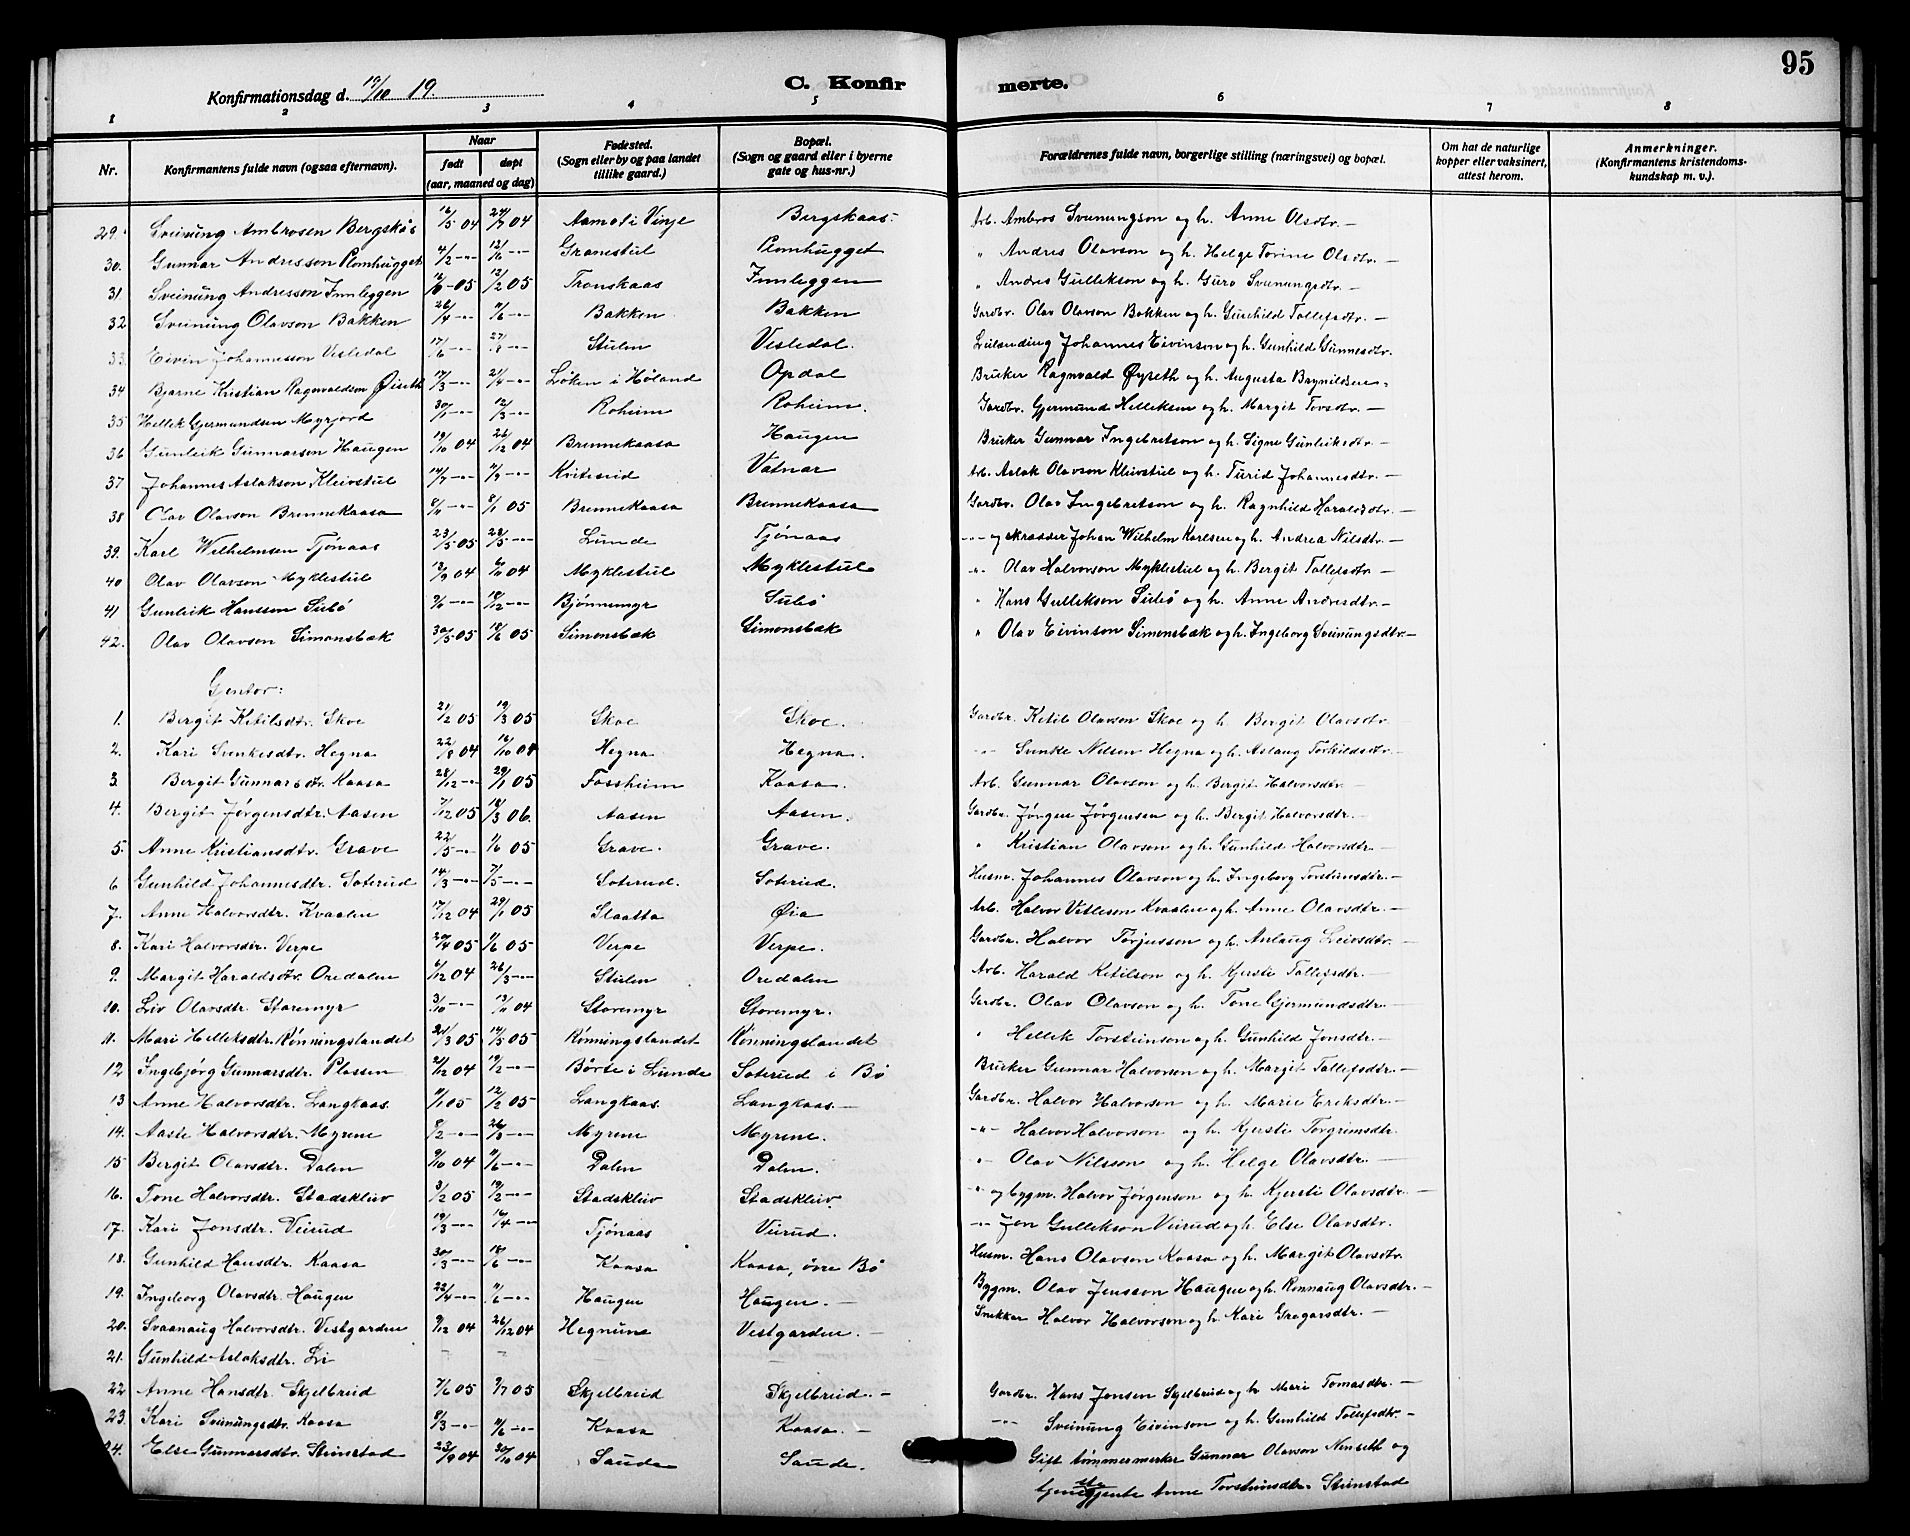 95
Konfirmationsdag d. 19/10 19. C. Konfirmerte.
1 2 3 4 5 6 7 8
Nr. Konfirmantens fulde navn (ogsaa efternavn). Naar født døpt (aar, maaned og dag) Fødested. (Sogn eller by og paa landet tillike gaard.) Bopæl. (Sogn og gaard eller i byerne gate og hus-nr.) Forældrenes fulde navn, borgerlige stilling (næringsvei) og bopæl. Om hat de naturlige kopper eller vaksinert, attest herom. Anmerkninger. (Konfirmantens kristendomskundskap m. v.).
29. Sveinung Ambrosen Bergskås 16/5 04 24/7 04 Aamot i Vinje Bergskaas. Arb. Ambros Sveinungson og h. Anne Olsdtr. —
30. Gunnar Andresson Plomhugget 4/2 -"- 12/6 -"- Granestul Plomhugget " Andres Olavson og h. Helge Torine Olsdtr. —
31. Sveinung Andresson Innleggen 05 12/2 05 Tronskaas Innleggen " Andres Gullekson og h. Guro Sveinungsdtr. —
32 Sveinung Olavson Bakken 26/4 -"- 11/6 -"- Bakken Bakken Gardbr. Olav Olavson Bakken og h. Gunhild Tollefsdtr. —
33 Eivin Johannesson Vesledal 17/6 -"- Stulen Vesledal. Johannes Eivinson og h. Gunhild Gunnesdtr.
34 Bjarne Kristian Ragnvaldson Øiseth 17/3 -"- 21/4 -"- Løken i Høland Opdal Bruker Ragnvald Øyseth og h. Augusta Brynildsen
35 Hellek Gjermundsen Myrjord 30/1 -"- 12/3 -"- Roheim Roheim. Gardbr. Gjermund Helleksen og h. Margit Torsdtr. —
36 Gunleik Gunnarsen Haugen 19/10 04 26/12 04 Brennekaasa Haugen Bruker Gunnar Ingebretson og h. Signe Gunleiksdtr. —
37 Johannes Aslakson Kleivstul 14/7 -"- 11/9 -"- Kviteseid Vatnar Arb. Aslak Olavson Kleivstul og h. Turid Johannesdtr. —
38 Olav Olavson Brennekaasa 8/11 -"- 8/1 05 Brennekaasa Brennekaasa Gardbr. Olav Ingebretson og h. Ragnhild Haraldsdtr. —
39. Karl Wilhelmsen Tjønaas 23/5 05 28/5 -"- Lunde Tjønaas -"- og skrædder Johan Wilhelm Karlsen og h. Andrea Nilsdtr. —
40 Olav Olavson Myklestul 12/9 04 6/11 04 Myklestul Myklestul -"- Olav Halvorson Myklestul og h. Bergit Tollefsdtr. —
41 Gunleik Hansson Sisbø -"- 18/12 -"- Bjønnemyr Sisbø " Hans Gullekson Sisbø og h. Anne Andresdtr. —
42. Olav Olavson Simonsbæk 30/5 05 18/6 05 Simonsbæk Simonsbæk " Olav Eivinson Simonsbæk og h. Ingeborg Sveinungsdtr. —
Gentor:
1. Bergit Ketilsdtr. Skoe 21/2 05 19/3 05 Skoe Skoe. Gardbr. Ketil Olavson Skoe og h. Bergit Olavsdtr.
2. Kari Sunkesdtr. Hegna 22/8 04 16/10 04 Hegna Hegna. -"- Sunke Nilsen Hegna og h. Aslaug Torkildsdtr. —
3. Bergit Gunnarsdtr. Kaasa 28/12 -"- 29/1 05 Fossheim Kaasa. Arb. Gunnar Olavson og h. Bergit Halvorsdtr. —
4. Bergit Jørgensdtr. Aasen 7/12 05 18/3 06. Aasen Aasen. Gardbr. Jørgen Jørgensen og h. Bergit Halvorsdtr. —
5. Anne Kristiansdtr. Grave 22/5 -"- 11/6 05 Grave. Grave. " Kristian Olavson og h. Gunhild Halvorsdtr —
6 Gunhild Johannesdtr. Soterud 14/3 -"- 7/5 -"- Soterud. Soterud. Husm. Johannes Olavson og h. Ingeborg Torsteinsdtr. —
7. Anne Halvorsdtr. Kvaalen 17/12 04 29/1 05 Slaatta Øia Arb. Halvor Vetleson Kvaalen og h. Anne Olavsdtr. —
8. Kari Halvorsdtr. Verpe 20/4 05 11/6 05 Verpe Verpe. Gardbr. Halvor Torjusson og h. Aslaug Leivsdtr. —
9. Margit Haraldsdtr. Oredalen 6/12 04 26/3 -"- Stulen Oredalen Arb. Harald Ketilson og h. Kjersti Tollefsdtr. —
10. Liv Olavsdtr. Storemyr 3/10 -"- 13/11 04 Storemyr Storemyr. Gardbr. Olav Olavson og h. Tone Gjermundsdtr. —
11. Mari Helleksdtr. Rønningslandet 21/3 05 14/5 05 Rønningslandet Rønningslandet " Hellek Torsteinson og h. Gunhild Jonsdtr. —
12 Ingebjørg Gunnarsdtr. Plassen 21/12 04 19/2 -"- Børte i Lunde Soterud i Bø Bruker Gunnar Halvorsen og h. Margit Tollefsdtr. —
13 Anne Halvorsdtr. Langkaas 11/1 05 12/2 05 Langkaas. Langkaas. — Gardbr. Halvor Halvorson og h. Marie Eriksdtr. —
14. Aaste Halvorsdtr. Myrene 8/2 -"- 26/3 -"- Myrene Myrene. -"- Halvor Halvorson og h. Kjersti Torgrimsdtr.
15 Bergit Olavsdtr. Dalen 9/10 04 11/6 -"- Dalen Dalen. -"- Olav Nilsson og h. Helge Olavsdtr. —
16. Tone Halvorsdtr. Stadskleiv 3/2 05 19/2 -"- Stadskleiv Stadskleiv. -"- og bygm. Halvor Jørgenson og h. Kjersti Olavsdtr. —
17. Kari Jonsdtr. Veirud 19/3 -"- 16/4 -"- Tjønaas Veirud. -"- Jon Gullekson Veirud og h. Else Olavsdtr.
18. Gunhild Hansdtr. Kaasa 30/3 -"- 18/6 -"- Kaasa Kaasa, övre Bø Husm. Hans Olavson Kaasa og h. Margit Olavsdtr.
19. Ingeborg Olavsdtr. Haugen 22/4 -"- 11/6 -"- Haugen Haugen. — Bygm. Olav Jensson Haugen og h. Rønnaug Olavsdtr. —
20. Svaanaug Halvorsdtr. Vestgarden 9/12 04 26/12 04 Hegnune Vestgarden. — Snikkar Halvor Halvorson og h. Kari Gregarsdtr. —
21. Gunhild Aslaksdtr. Li — —
22 Anne Hansdtr. Skjelbreid 7/6 05 9/7 05 Skjelbreid Skjelbreid. — Gardbr. Hans Jonsen Skjelbreid og h. Mari Tomasdtr. —
23. Kari Sveinungsdtr. Kaasa 8/3 -"- 11/6 -"- Kaasa Kaasa. — -"- Sveinung Eivinson og h. Gunhild Tollefsdtr. —
24. Else Gunnarsdtr. Steinstad 23/9 04 30/10 04 Saude Saude. Gift tømmermerker Gunnar Olavson Nenseth og
gjente Anne Torsteinsdtr. Steinstad